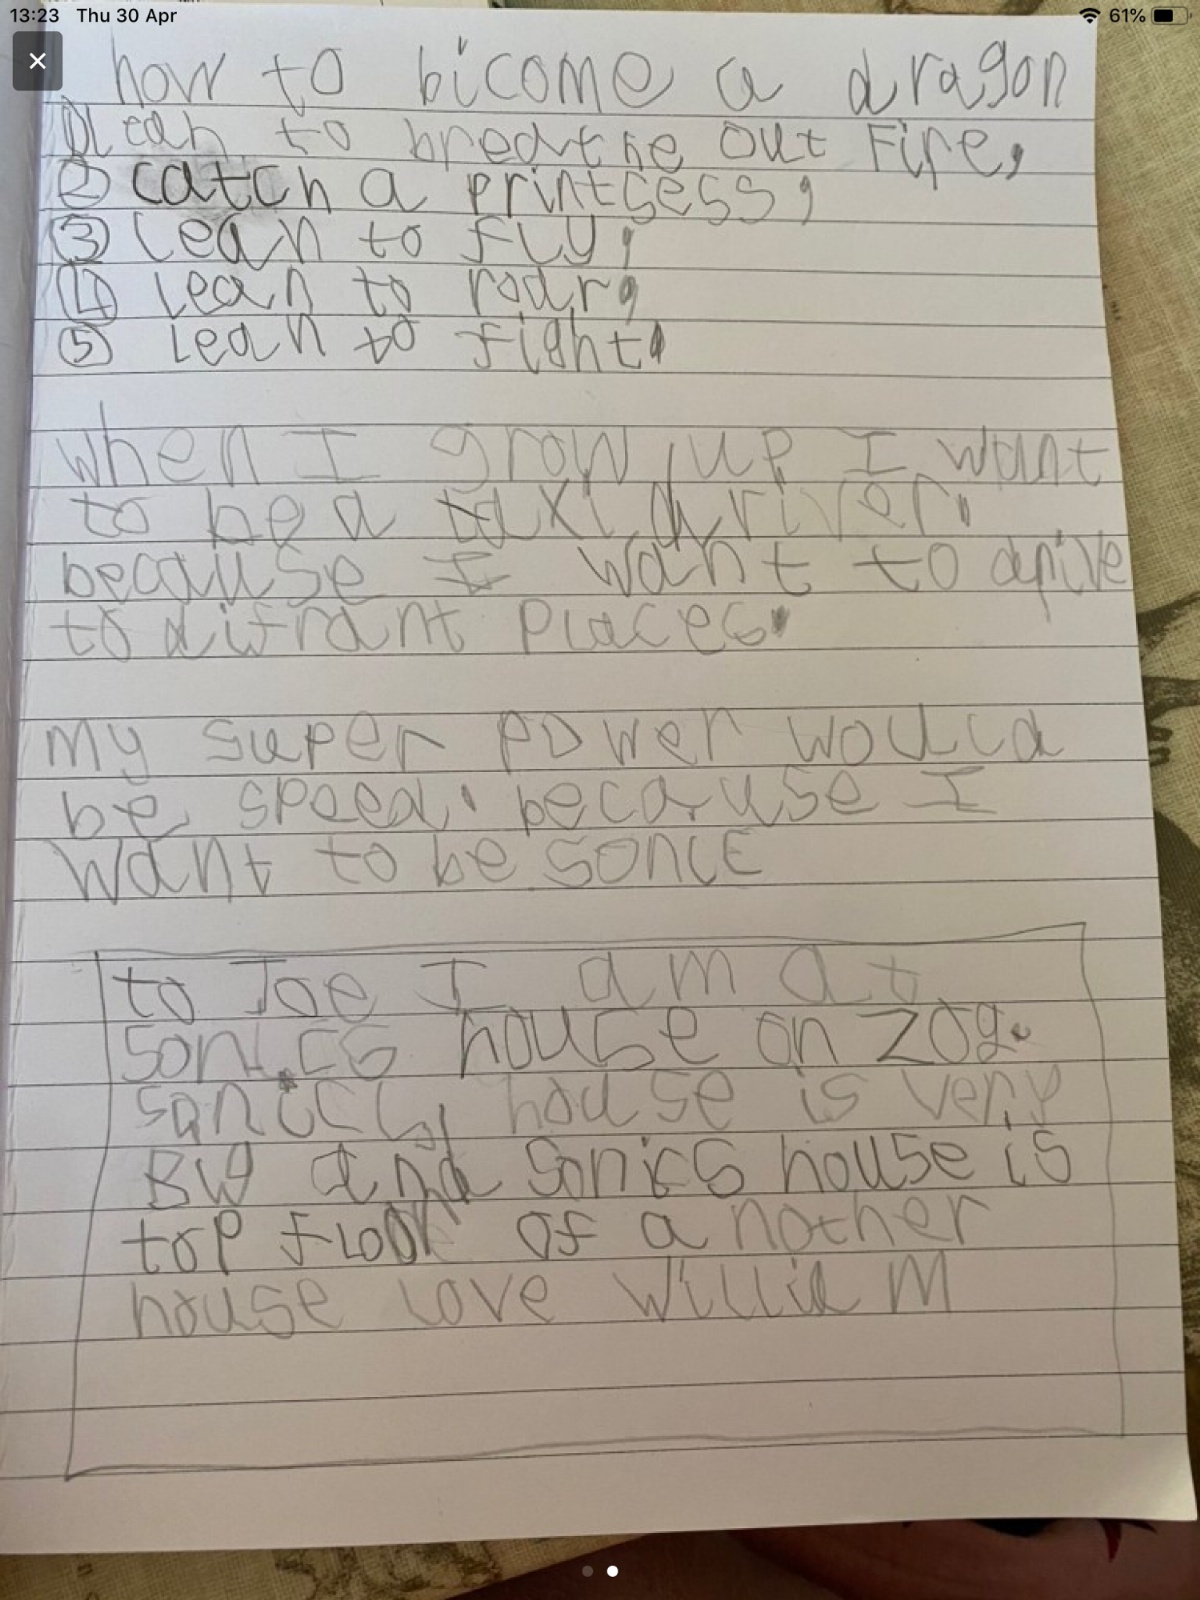 13:23 Thu 30 Apr 61%
how to bicome a dragon
① lean to breathe out Fire,
② catch a printsess,
③ lean to fly,
④ lean to roar,
⑤ lean to fight.
when I grow up I want
to be a taxi driver.
because I want to drive
to difrant places.
my super power would
be speed. because I
want to be sonic
to Joe I am at
sonics house on zog.
house is very
Big and sonics house is
top floor of a nother
house love Willia M